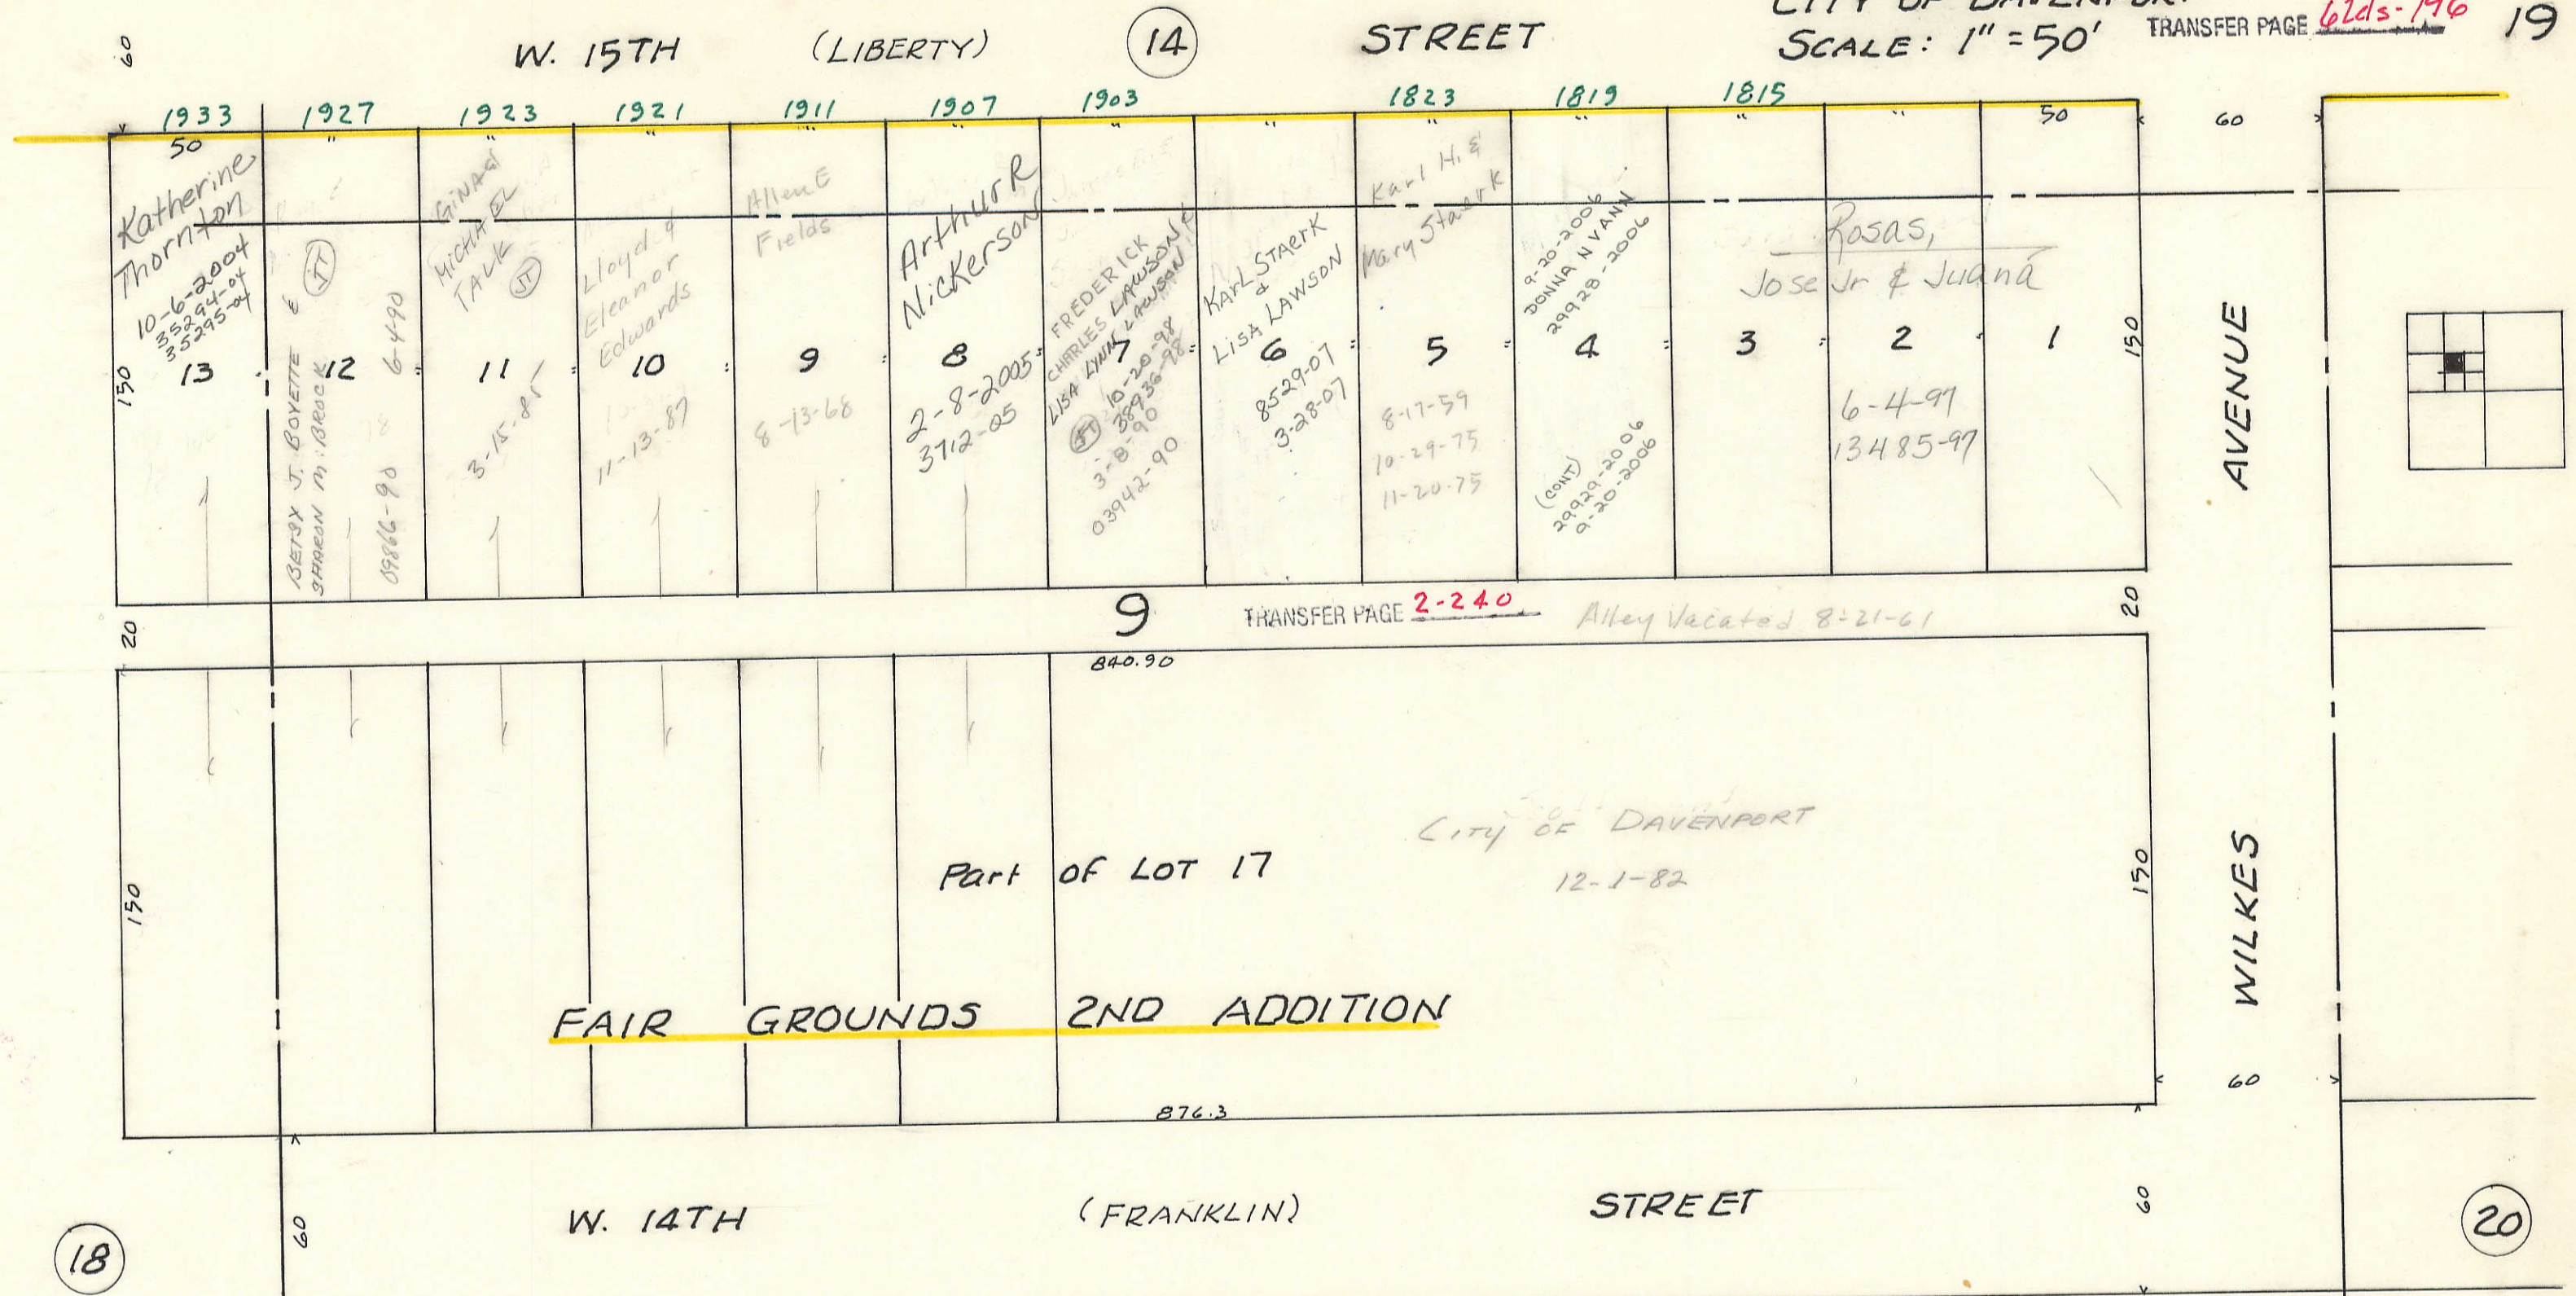 CITY OF DAVENPORT
60 W. 15TH (LIBERTY) 14 STREET SCALE: 1" = 50' TRANSFER PAGE 62ds-196 19
1933 1927 1923 1921 1911 1907 1903 1823 1819 1815
50 " " " " " " " " " " " 50 60
Katherine
Thornton
10-6-2004
35294-04
35295-04
13
150
BETSY J. BOYETTE &
SHARON M. BROCK
JT
6-4-90
09866-90
12
GINA &
MICHAEL
TALK
JT
11
3-15-85
Lloyd &
Eleanor
Edwards
10
11-13-87
Allen E
Fields
9
8-13-68
Arthur R
Nickerson
8
2-8-2005
3712-05
FREDERICK
CHARLES LAWSON &
LISA LYNN LAWSON
7
10-20-98
38936-98
JT
3-8-90
03942-90
KARL STAERK
&
LISA LAWSON
6
8529-07
3-28-07
Karl H. &
Mary Staerk
5
8-17-59
10-29-75
11-20-75
9-20-2006
DONNA N VANN
29928-2006
4
(CONT)
29929-2006
9-20-2006
Rosas,
Jose Jr & Juana
3 2 1
6-4-97
13485-97
150
AVENUE
20 9 TRANSFER PAGE 2-240 Alley Vacated 8-21-61 20
840.90
CITY OF DAVENPORT
12-1-82
Part OF LOT 17
150 150
FAIR GROUNDS 2ND ADDITION
WILKES
60
876.3
60 W. 14TH (FRANKLIN) STREET 60
18 20